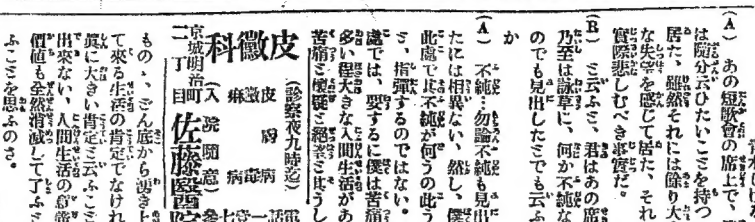 (A) あの短歌會の席上で、
は隨分云ひたいことを持つ
居た、雖然それには餘り大
な失望を感じて居た、それ
實際悲しむべき事實だ。
(B) と云ふと、君はあの席
乃至は詠草に、何か不純な
のでも見出したとでも云ふ
か
(A) 不純…勿論不純も見出
たには相異ない、然し、僕
此處で其不純が何うの此う
と、指彈するのではない。
處では、要するに僕は苦痛
多い程大きな人間生活があ
苦痛と懷疑と絕望と其うし
皮黴科
(診察夜九時迄)
皮膚病
黴毒
痳病
(入院隨意)
京城明治町
二丁目
佐藤醫院
もの、どん底から湧き上
て來る生活の肯定でなけれ
眞に大きい肯定と云ふこと
出來ない、人間生活の意義
價値も全然消滅して了ふと
ふことを思ふのさ。